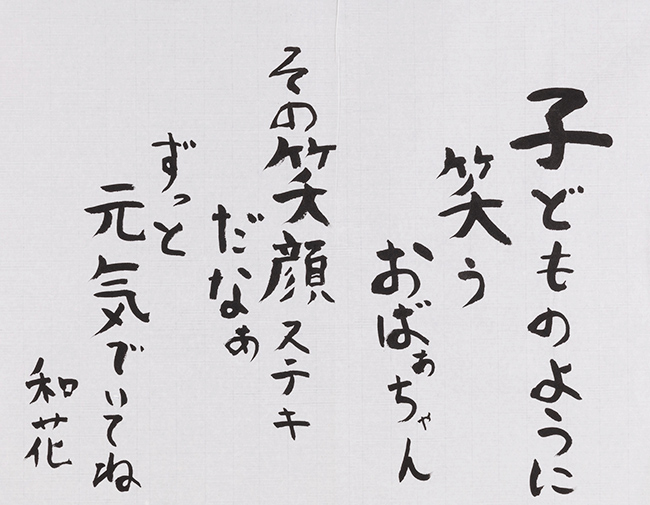 子どものように
笑う
おばぁちゃん
その笑顔ステキ
だなぁ
ずっと
元気でいてね
和花